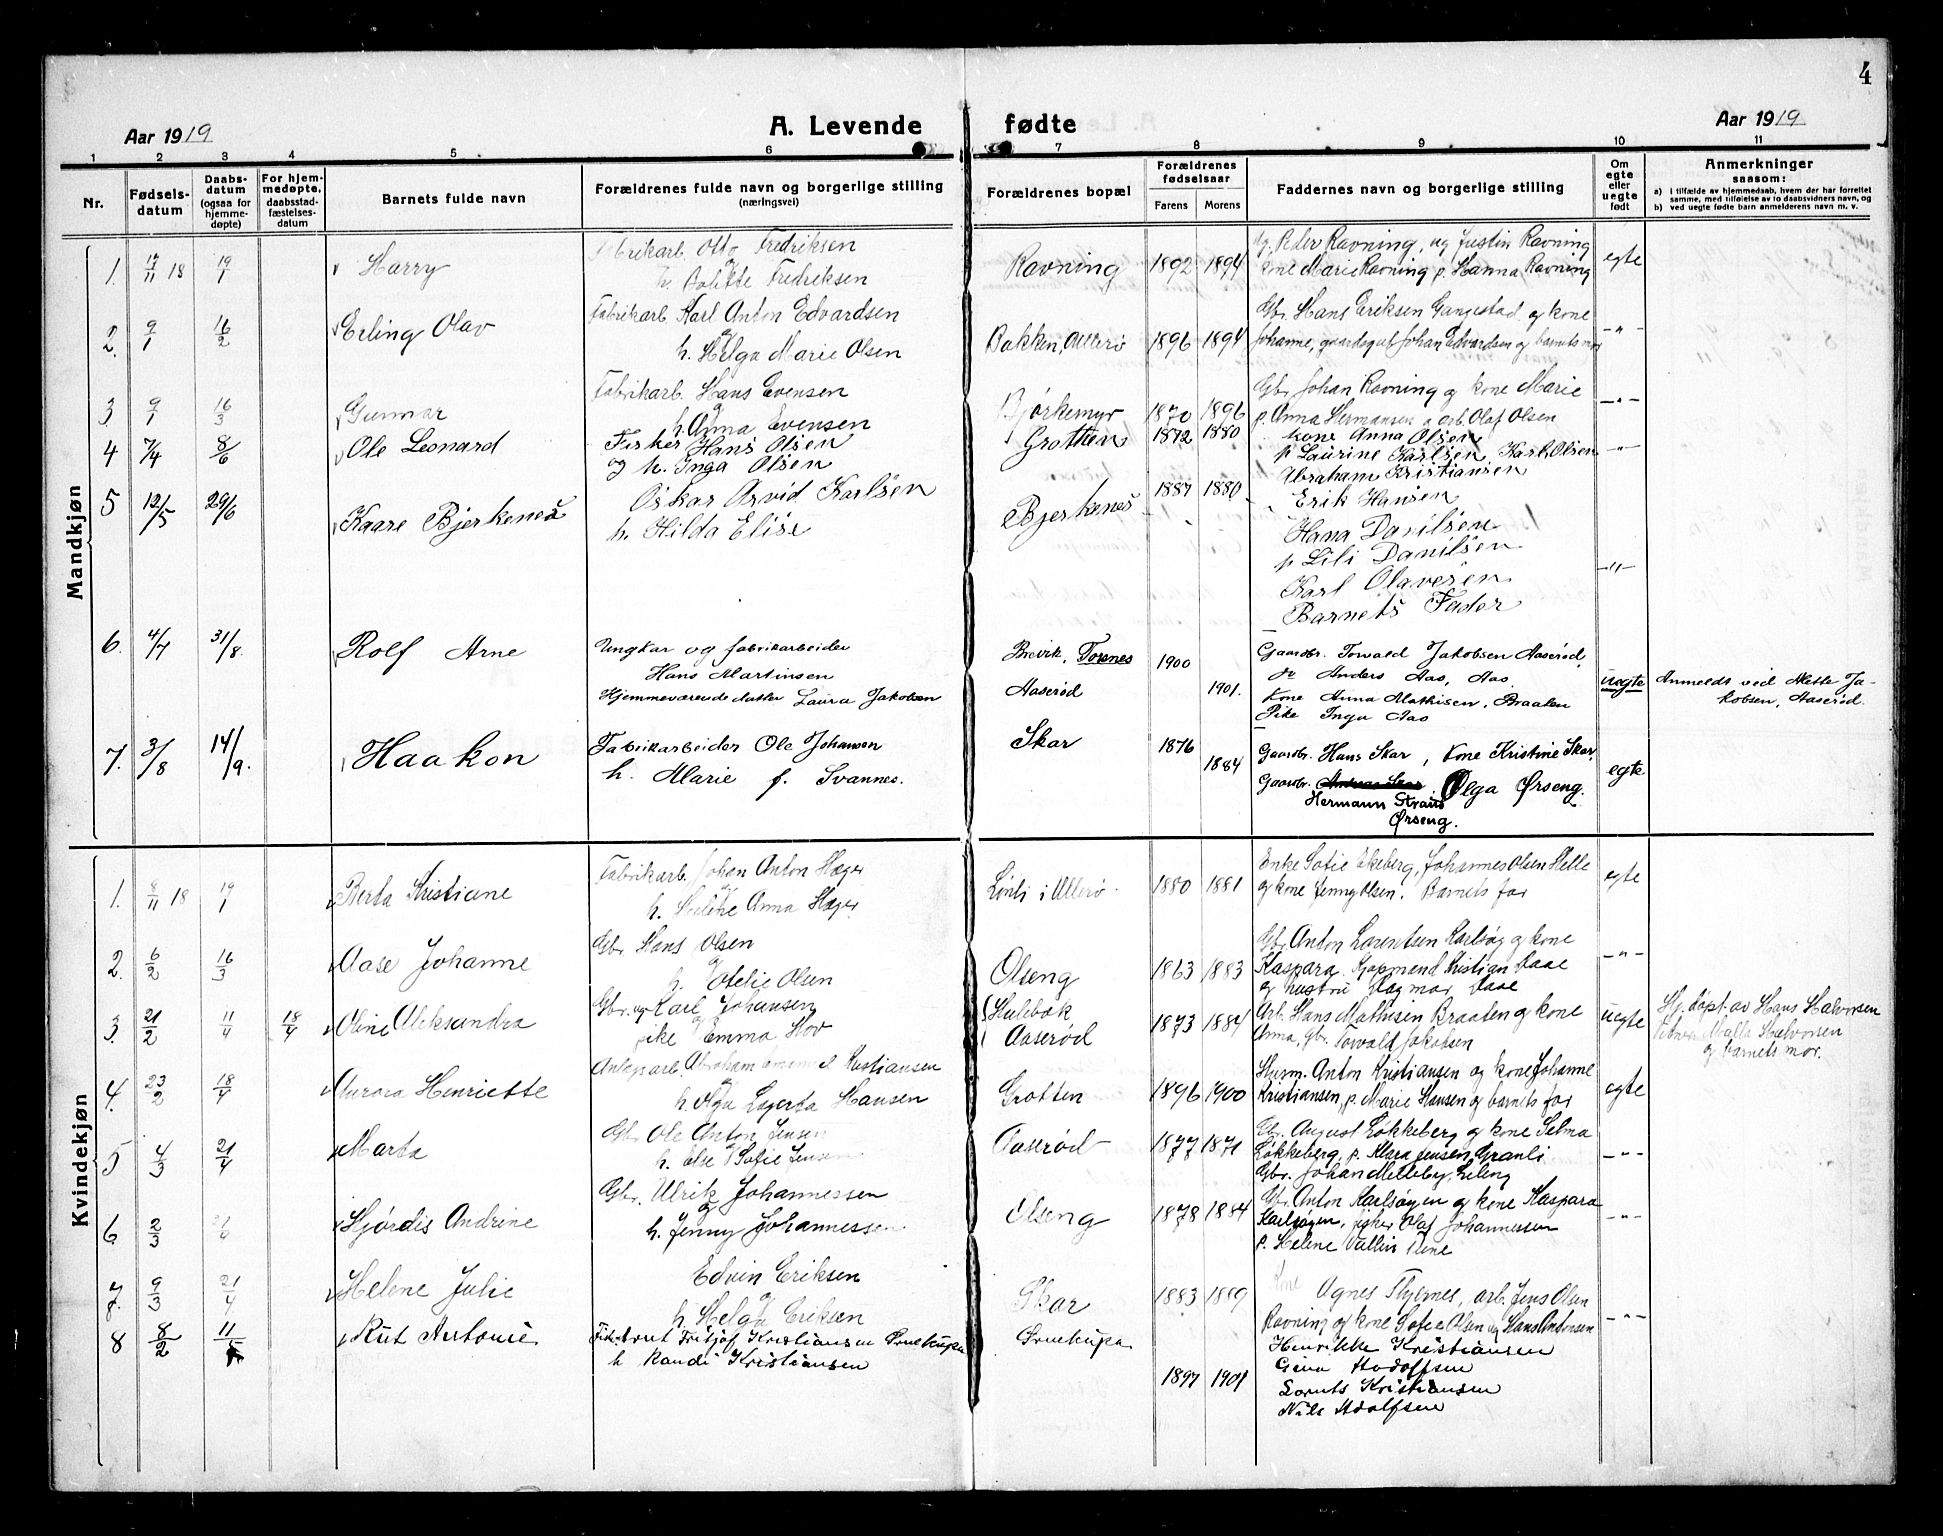 4
Aar 1919
A. Levende fødte
Aar 1919
1 2 3 4 5 6 7 8 9 10 11
Nr.
Fødsels-
datum
Daabs-
datum
(ogsaa for
hjemme-
døpte)
For hjem-
medøpte,
daabsstad-
fæstelses-
datum
Barnets fulde navn
Forældrenes fulde navn og borgerlige stilling
(næringsvei)
Forældrenes bopæl
Forældrenes
fødselsaar
Farens Morens
Faddernes navn og borgerlige stilling
Om
egte
eller
uegte
født
Anmerkninger
saasom:
a) i tilfælde av hjemmedaab, hvem der har forrettet
samme, med tilføielse av to daabsvidners navn, og
b) ved uegte fødte barn anmelderens navn m. v.
Mandkjøn
1. 17/11 18 19/1 Harry
Fabrikarb. Otto Fredriksen
og
h. Fredriksen
Ravning 1892 1894
Peder Ravning, ug Justin Ravning
kone Marie Ravning p. Hanna Ravning
egte
2. 9/1 16/2 Erling Olav
Fabrikarb. Karl Anton Edvardsen
og
h. Helga Marie Olsen
Bakken, Ullerø 1896 1894
Gbr. Hans Eriksen Gangestad og kone
Johanne, Johan Edvardsen og barnets mor
-"-
3 9/1 16/3 Gunnar
Fabrikarb. Hans Evensen
og
h. Anna Evensen
Bjørkemyr 1870 1896
Gbr. Johan Ravning og kone Marie
p. Anna Hermansen, arb. Olaf Olsen
-"-
4 7/4 8/6 Ole Leonard
Fisker Hans Olsen
og h. Inga Olsen
Grotten 1872 1880
kone Anna Olsen
p Laurine Karlsen Karl Olsen
Abraham Kristiansen
-"-
5 12/5 29/6 Kaare Bjerkenes
Oskar Arvid Karlsen
h. Hilda Elise
Bjerkenes 1887 1880
Erik Hansen
Hana Danilsen
p Lili Danilsen
Karl Olavesen
Barnets Fader
-"-
6. 4/7 31/8. Rolf Arne
Ungkar og fabrikarbeider
Hans Martinsen
Hjemmeværende datter Laura Jakobsen
Brevik, Torsnes 1900
Aaserød 1901.
Gaardbr. Torvald Jakobsen Aaserød,
do Anders Aas, Aas
Kone Anna Mathisen, Braaten
Pike Inga Aas
uegte
Anmeldt ved Mette Ja-
kobsen, Aaserød.
7. 3/8 14/9. Haakon
Fabrikarbeider Ole Johansen
h. Marie f. Svannes.
Skar 1876 1884
Gaardbr. Hans Skar, Kone Kristine Skar,
Gaardbr. Andreas Skar. Olga Ørseng.
Hermann Straus
Ørseng.
egte
Kvindekjøn
1. 8/11 18 19/1 Berta Kristiane
Fabrikarb. Johan Anton Hæger
og
h. Anna Hæger
i Ullerø 1880 1881
Enke Sofie Ekeberg, Johannes Olsen Helle
og kone Jenny Olsen. Barnets far
egte
2. 6/2 16/3 Aase Johanne
Gbr Hans Olsen
og
h. Otelie Olsen
Olseng 1863 1883
Gbr. Anton Larentsen Karlsøy og kone
Kaspara. Kjøpmand Kristian Faae
og hustru Dagmar Faae
-"-
3. 21/2 11/4 18/4 Oline Aleksandra
Gbr. ug Karl Johansen
og
pike Emma Hov
Hulebak
Aaserød 1873 1884
Arb. Hans Mathisen Braaten og kone
Anna, Gbr. Torvald Jakobsen
uegte
Hj. døpt av Hans Halvorsen
Halvorsen
og barnets mor.
4. 23/2 18/4 Aurora Henriette
Anlægsarb. Abraham Kristiansen
og
h. Olga Hansen
Grotten 1896 1900
Anton Kristiansen og kone Johanne
Kristiansen, p. Marie Hansen og barnets far
egte
5 4/3 21/4 Marta
Gbr. Ole Anton Jensen
og
h. Else Sofie Jensen
Aaserød 1877 1871
Gbr. August Løkkeberg og kone Selma
Løkkeberg, p. Klara Jensen, Granli
Gbr. Johan Melleby
-"-
6. 2/3 Hjørdis Andrine
Gbr. Ulrik Johannessen
og
h. Jenny Johannessen
Olseng 1878 1884
Gbr. Anton Karlsøyen og kone Kaspara
Karlsøyen, fisker Olaf Johannessen
p. Helene Vallin
-"-
7. 9/3 21/4 Helene Julie
Edvin Eriksen
og
h. Helga Eriksen
Skar 1883 1889
Agnes Thjernes, arb. Jens Olsen
Ravning og kone Sofie Olsen ug Hans Antonsen
-"-
8 8/2 11/5 Rut Antonie
Fritjof Kristiansen Ørnekupa
h Randi Kristiansen
Ørnekupa
1897 1901
Henrikke Kristiansen
Gina Adolfsen
Kristiansen
Nils Adolfsen